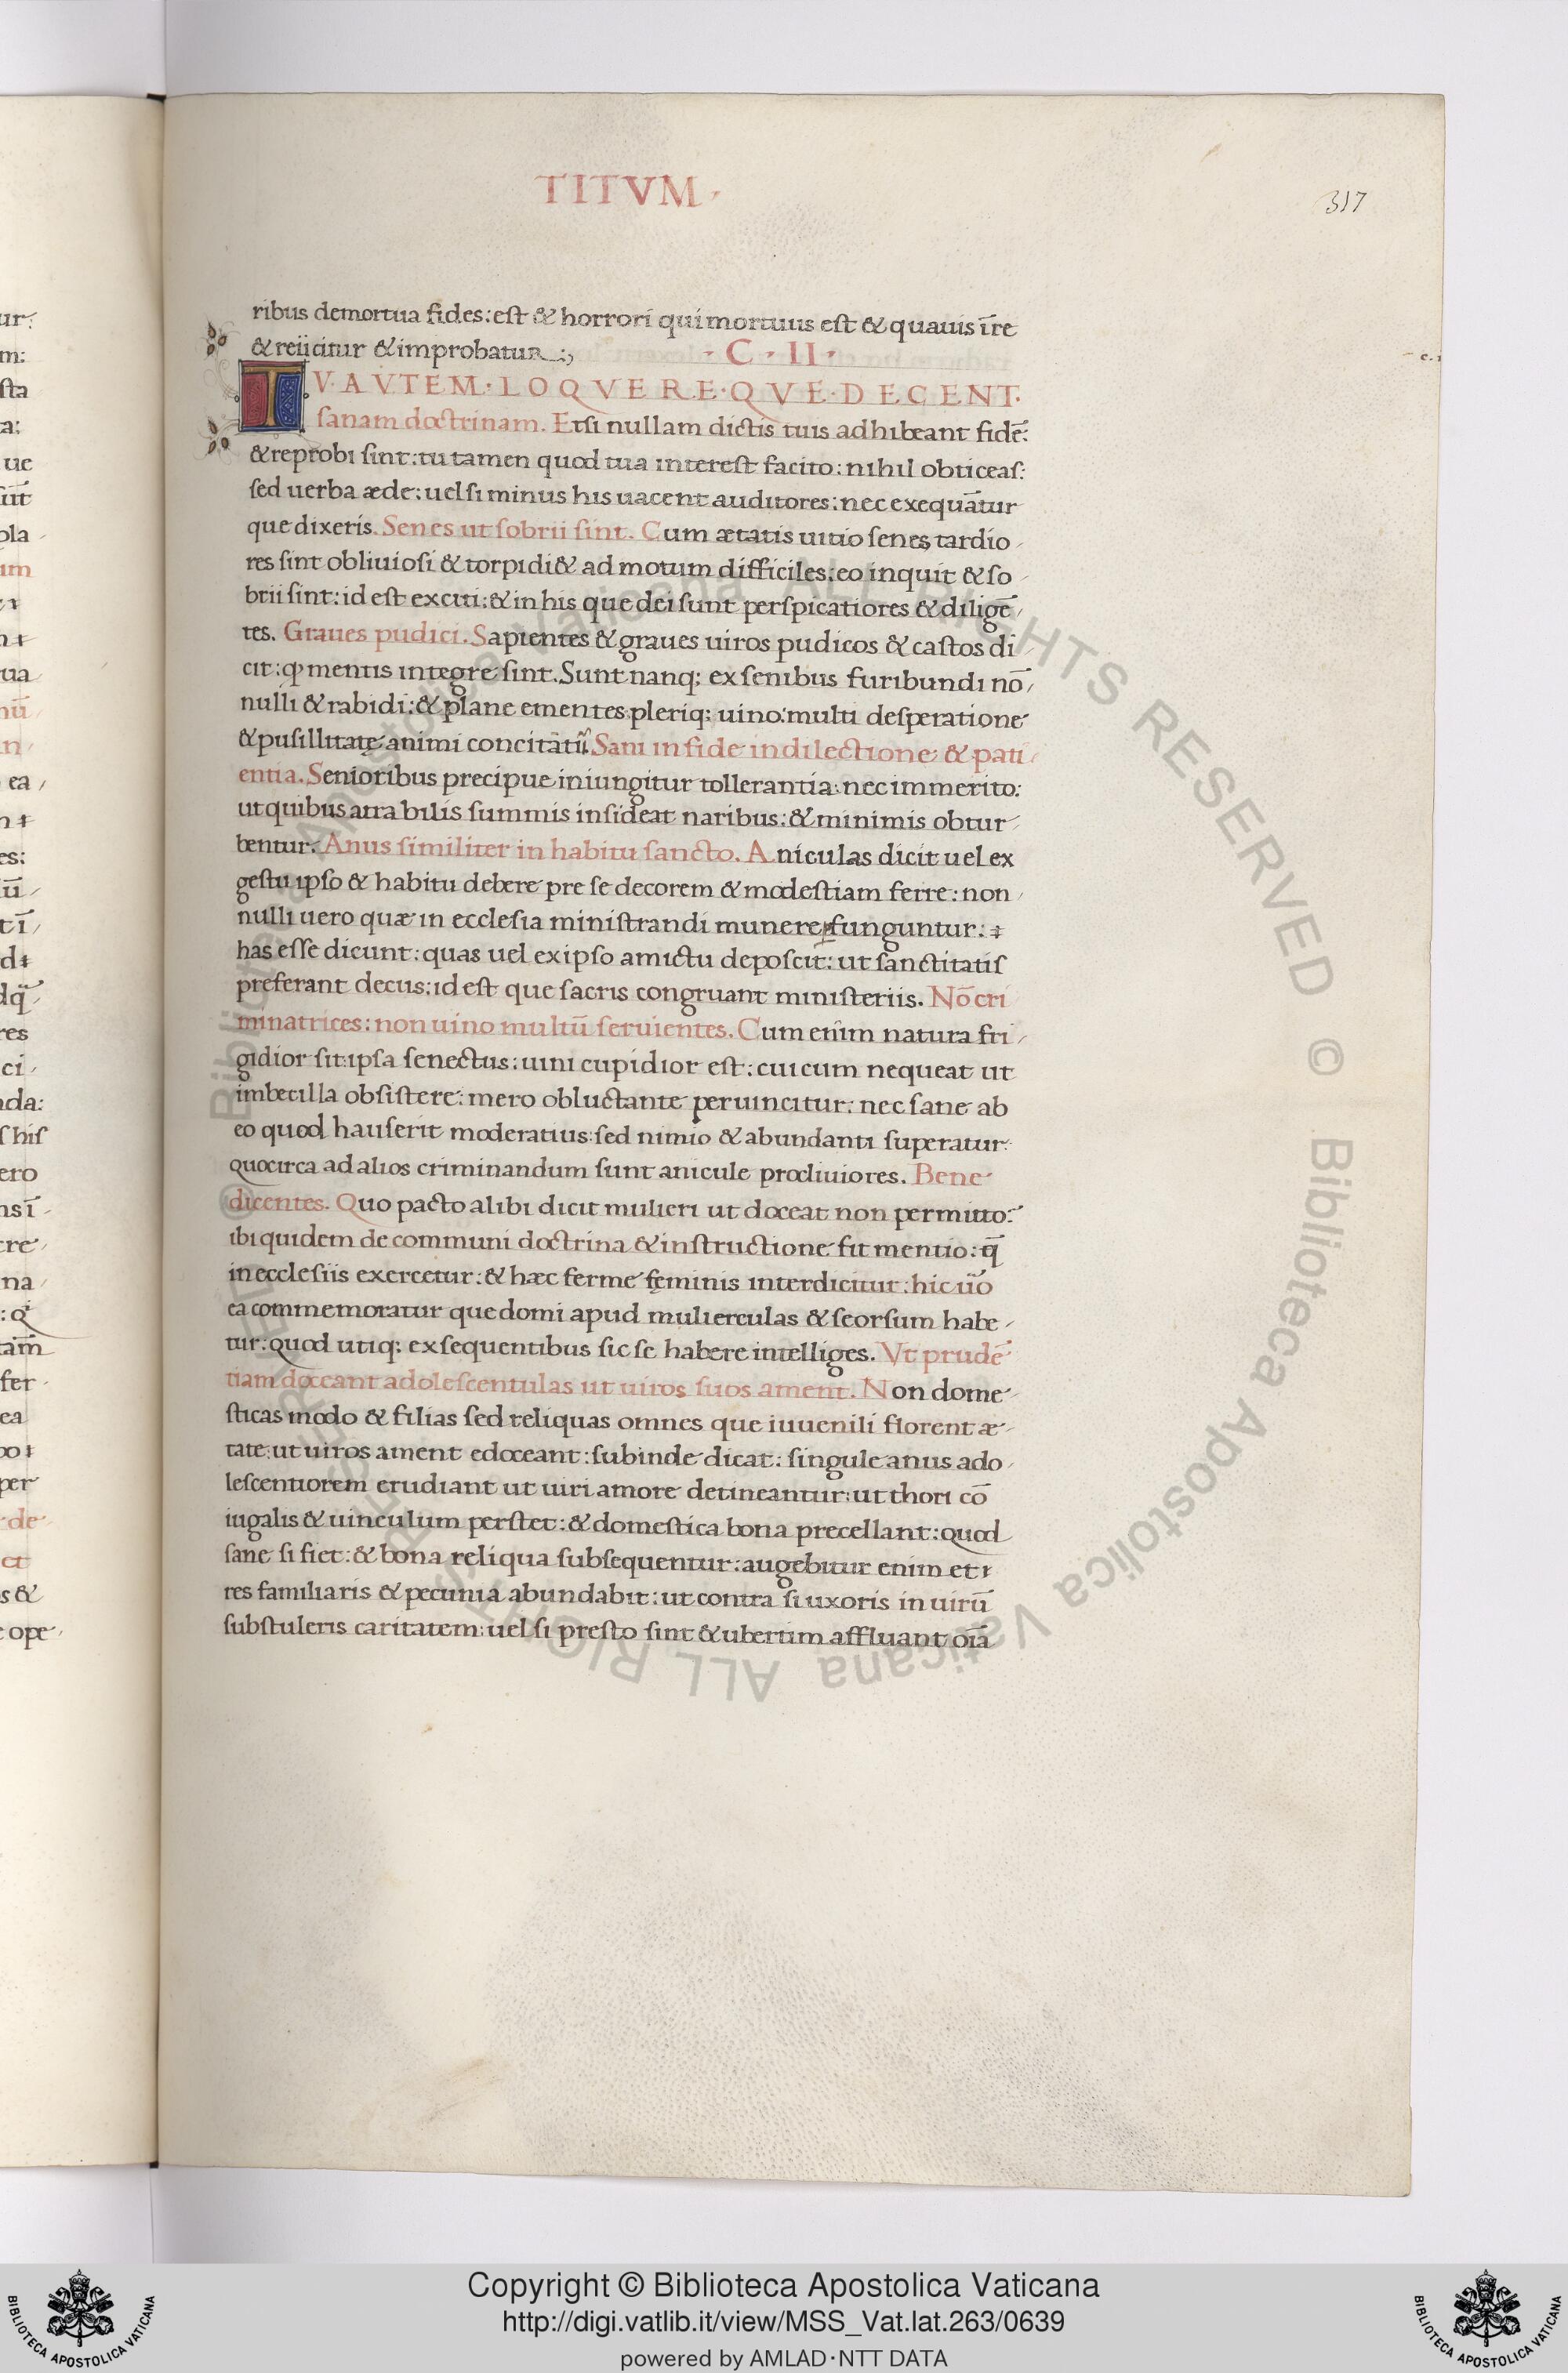 TITVM·
317
ribus demortua fides: est & horrori qui mortuus est & quauis īre
& reiicitur & improbatur :,
· C · II ·
TV· AVTEM· LOQVERE· QVE· DECENT·
sanam doctrinam. Etsi nullam dictis tuis adhibeant fidē:
& reprobi sint: tu tamen quod tua interest facito: nihil obticeas:
sed uerba æde: uel si minus his uacent auditores: nec exequātur
que dixeris. Senes ut sobrii sint. Cum ætatis uitio senes tardio
res sint obliuiosi & torpidi & ad motum difficiles: eo inquit & so
brii sint: id est exciti: & in his que dei sunt perspicatiores & diligē
tes. Graues pudici. Sapientes & graues uiros pudicos & castos di
cit: ꝙ mentis integre sint. Sunt nanq; ex senibus furibundi nō
nulli & rabidi: & plane ementes pleriq; uino: multi desperatione
& pusillitatę animi concitati. Sani in fide in dilectione & pati
entia. Senioribus precipue iniungitur tollerantia: nec immerito:
ut quibus atra bilis summis insideat naribus: & minimis obtur
bentur. Anus similiter in habitu sancto. Aniculas dicit uel ex
gestu ipso & habitu debere pre se decorem & modestiam ferre: non
nulli uero quæ in ecclesia ministrandi munere funguntur:
has esse dicunt: quas uel ex ipso amictu deposcit: ut sanctitatis
preferant decus: id est que sacris congruant ministeriis. Nō cri
minatrices: non uino multū seruientes. Cum enim natura fri
gidior sit ipsa senectus: uini cupidior est: cui cum nequeat ut
imbecilla obsistere: mero obluctante peruincitur: nec sane ab
eo quod hauserit moderatius: sed nimio & abundanti superatur:
quocirca ad alios criminandum sunt anicule procliuiores. Bene
dicentes. Quo pacto alibi dicit mulieri ut doceat non permitto:
ibi quidem de communi doctrina & instructione fit mentio: q̄
in ecclesiis exercetur: & hæc ferme fęminis interdicitur: hic ūo
ea commemoratur que domi apud mulierculas & seorsum habe
tur: quod utiq; ex sequentibus sic se habere intelliges. Vt prudē
tiam doceant adolescentulas ut uiros suos ament. Non dome
sticas modo & filias sed reliquas omnes que iuuenili florent æ
tate: ut uiros ament edoceant: subinde dicat: singule anus ado
lescentiorem erudiant ut uiri amore detineantur: ut thori cō
iugalis & uinculum perstet: & domestica bona precellant: quod
sane si fiet: & bona reliqua subsequentur: augebitur enim et
res familiaris & pecunia abundabit: ut contra si uxoris in uirū
substuleris caritatem: uel si presto sint & ubertim affluant oīa
© Biblioteca Apostolica Vaticana ALL RIGHTS RESERVED © Biblioteca Apostolica Vaticana ALL RIGHTS RESERVED
Copyright © Biblioteca Apostolica Vaticana
http://digi.vatlib.it/view/MSS_Vat.lat.263/0639
powered by AMLAD·NTT DATA
BIBLIOTECA APOSTOLICA VATICANA
BIBLIOTECA APOSTOLICA VATICANA